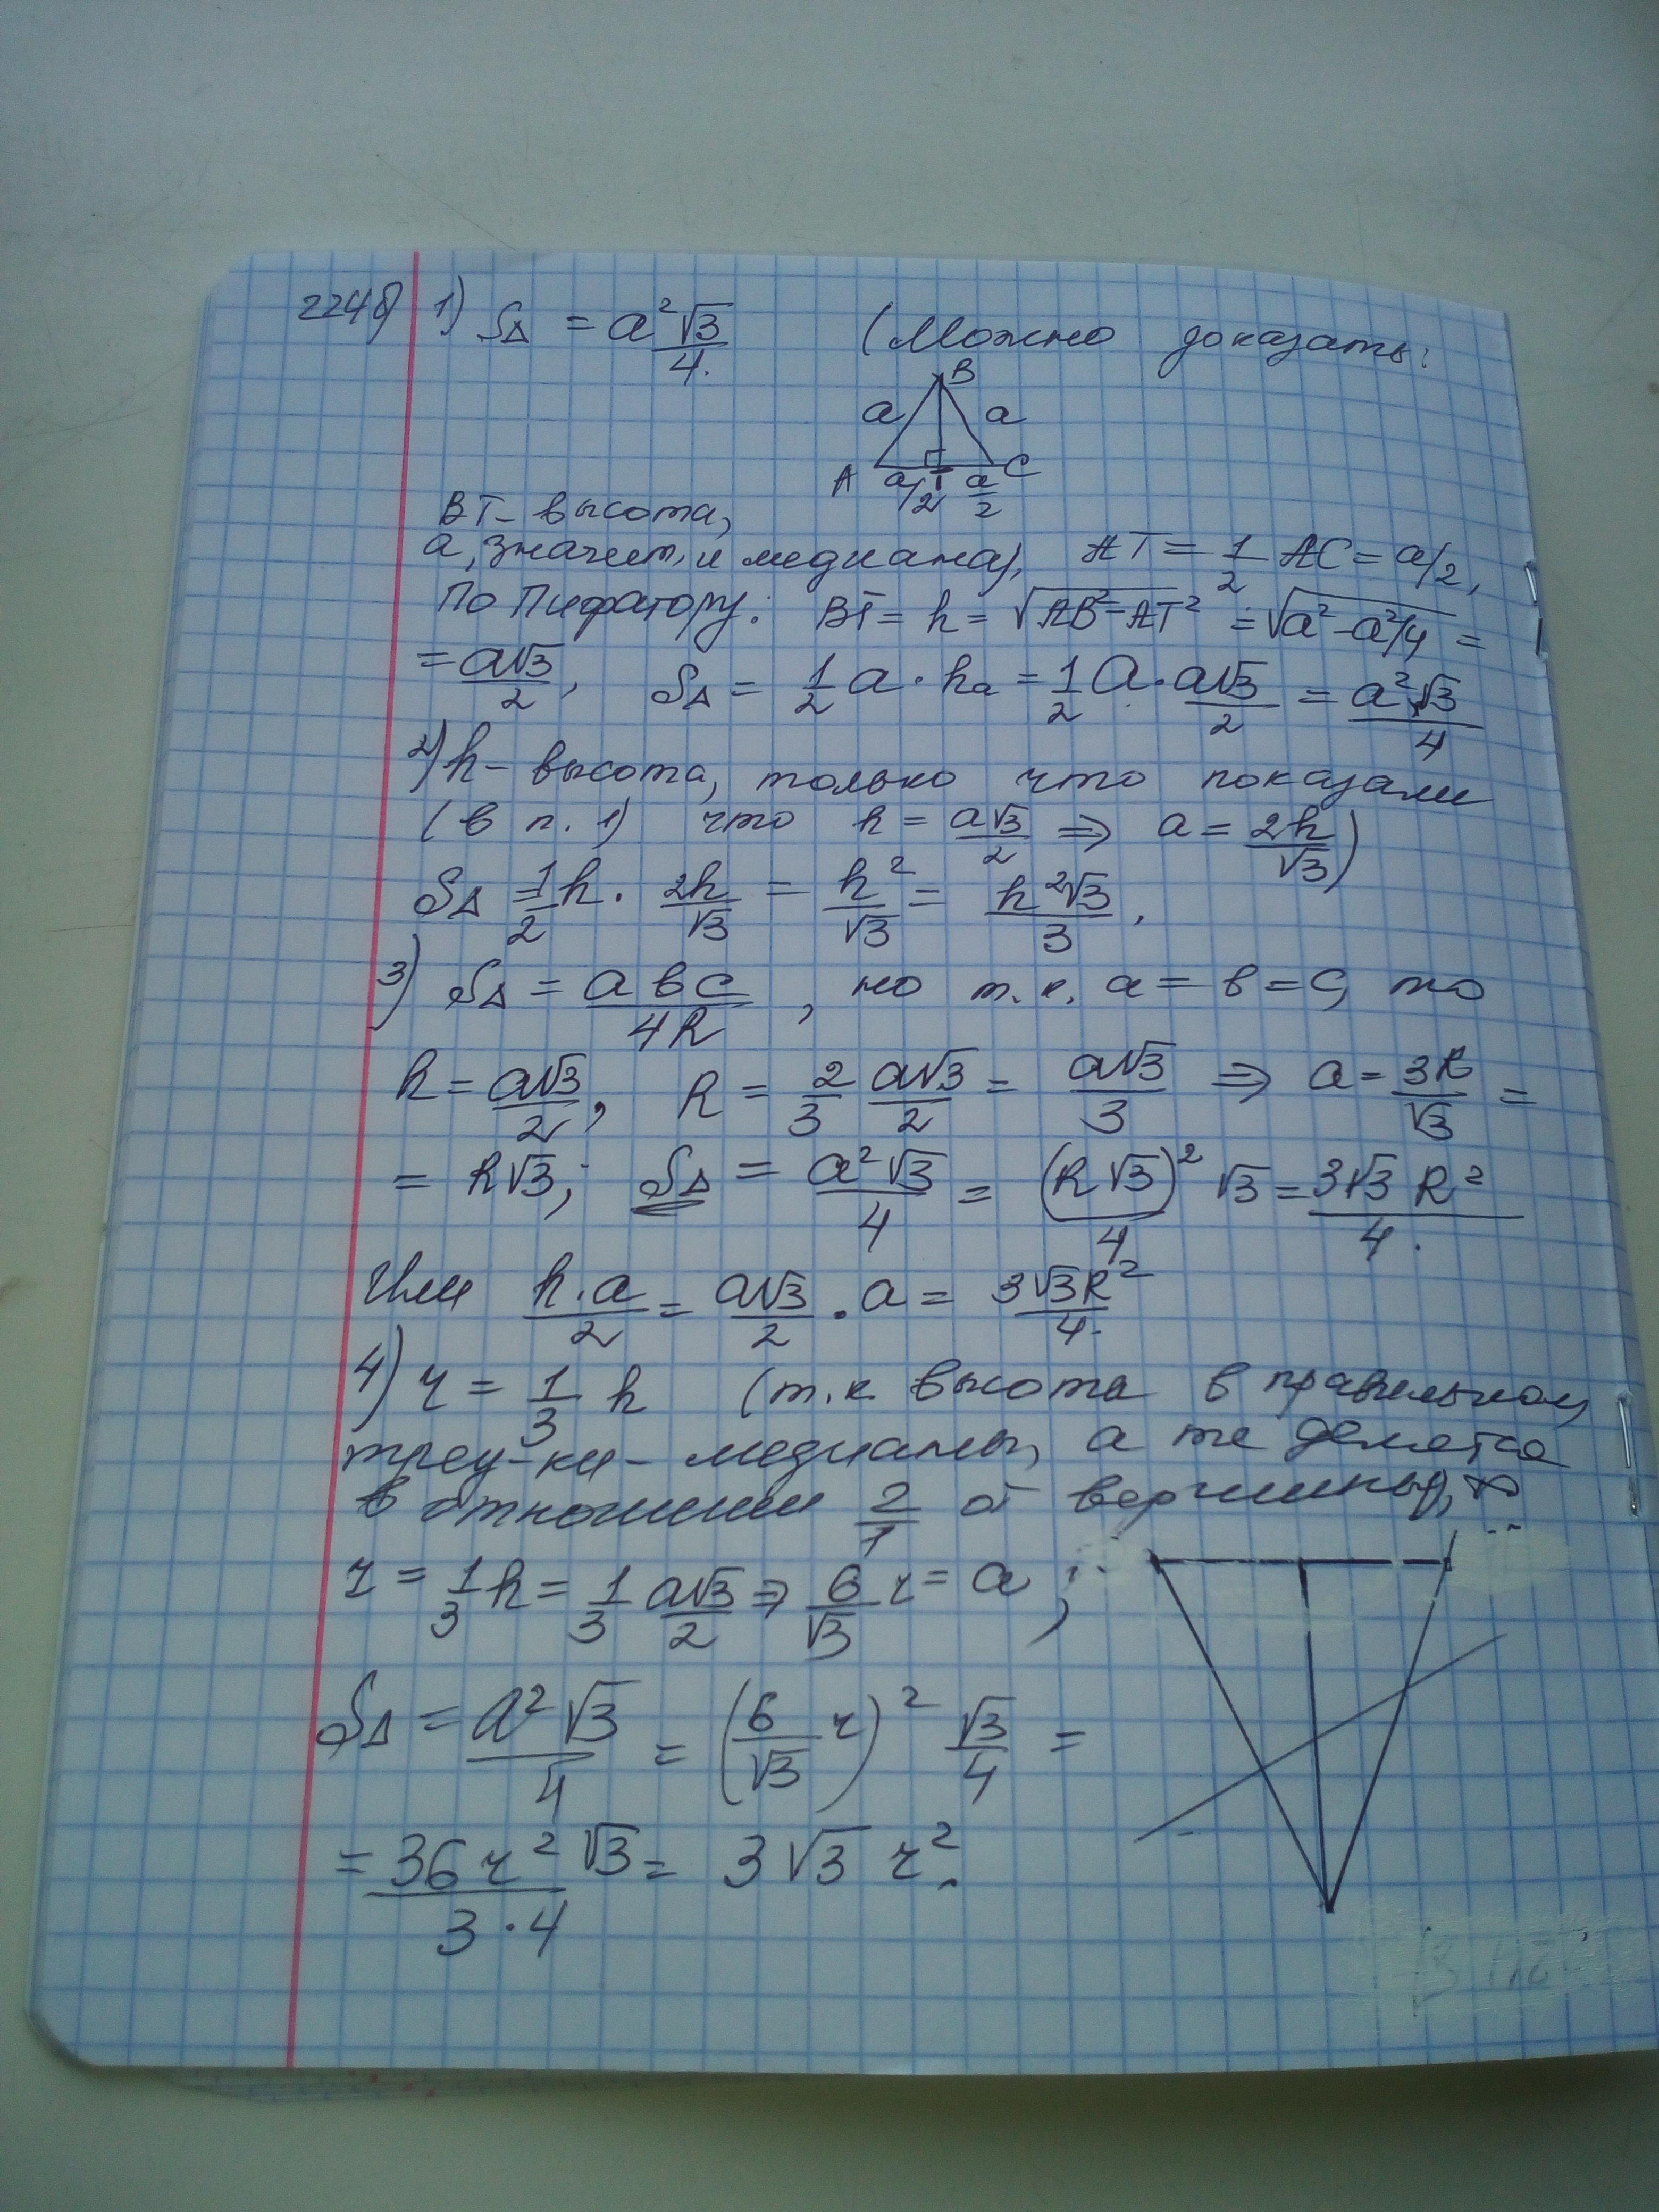 224б) 1) S∆ = a²√3/4. (Можно доказать:
B
a a
A a/2 T a/2 C
BT - высота,
а, значит, и медиана), AT = 1/2 AC = a/2,
По Пифагору: BT = h = √(AB² - AT²) = √(a² - a²/4) =
= a√3/2, S∆ = 1/2 a · hₐ = 1/2 a · a√3/2 = a²√3/4
2) h - высота, только что показали
(в п. 1) что h = a√3/2 ⇒ a = 2h/√3)
S∆ = 1/2 h · 2h/√3 = h²/√3 = h²√3/3,
3) S∆ = abc/4R, но т.к. a = b = c, то
h = a√3/2, R = 2/3 a√3/2 = a√3/3 ⇒ a = 3R/√3 =
= R√3; S∆ = a²√3/4 = (R√3)²/4 √3 = 3√3 R²/4.
Или h·a/2 = a√3/2 · a = 3√3R²/4.
4) r = 1/3 h (т.к высота в правильном
треу-ке - медианы, а те делятся
в отношении 2/1 от вершины,
r = 1/3 h = 1/3 a√3/2 ⇒ 6/√3 r = a;
S∆ = a²√3/4 = (6/√3 r)² √3/4 =
= 36 r²/3·4 √3 = 3√3 r².